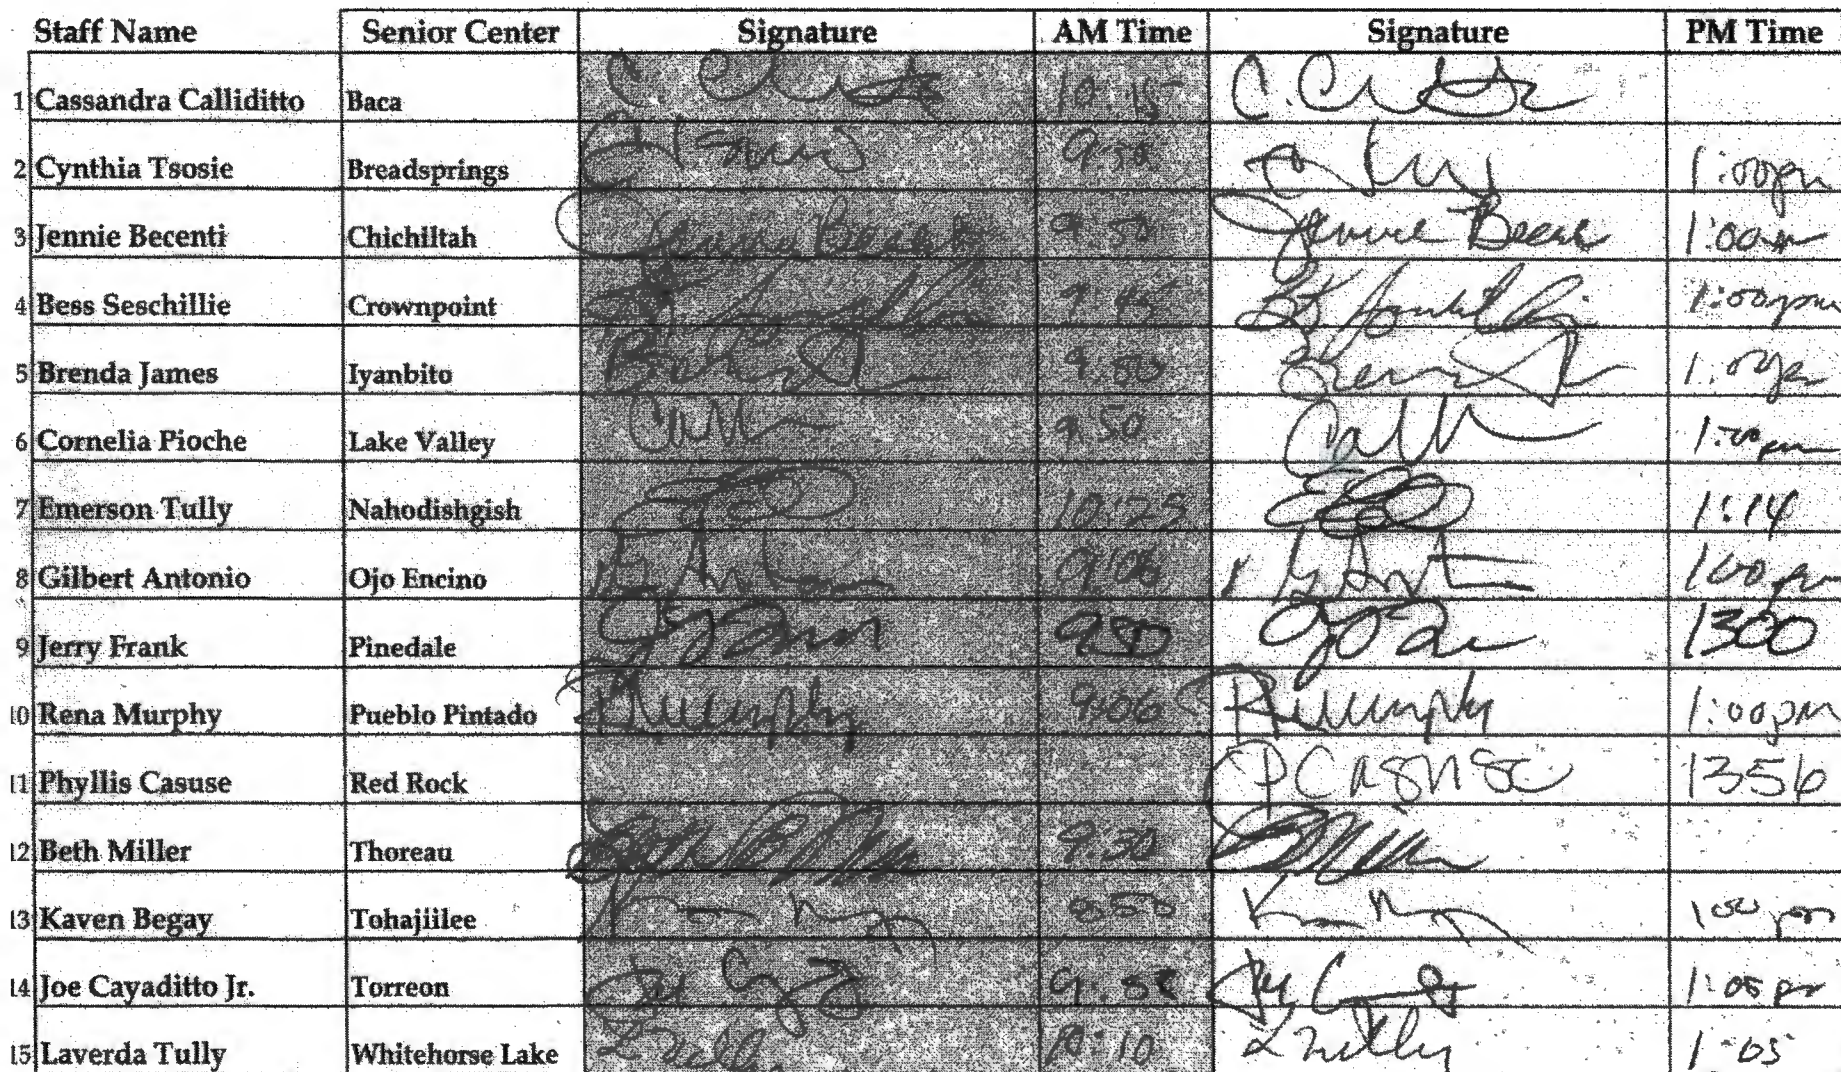 Staff Name Senior Center Signature AM Time Signature PM Time
1 Cassandra Calliditto Baca 10:15
2 Cynthia Tsosie Breadsprings 1:00pm
3 Jennie Becenti Chichiltah 9:50 Jennie Becenti 1:00pm
4 Bess Seschillie Crownpoint 9:45 1:00pm
5 Brenda James Iyanbito 9:50 1:00pm
6 Cornelia Pioche Lake Valley 9:50 1:00pm
7 Emerson Tully Nahodishgish 10:25 1:14
8 Gilbert Antonio Ojo Encino 9:06 1:00pm
9 Jerry Frank Pinedale 950 1300
10 Rena Murphy Pueblo Pintado RMurphy 9:06 RMurphy 1:00pm
11 Phyllis Casuse Red Rock PCasuse 1356
12 Beth Miller Thoreau 9:30
13 Kaven Begay Tohajiilee 850 100 pm
14 Joe Cayaditto Jr. Torreon 1:05 pm
15 Laverda Tully Whitehorse Lake 10:10 LTully 1:05